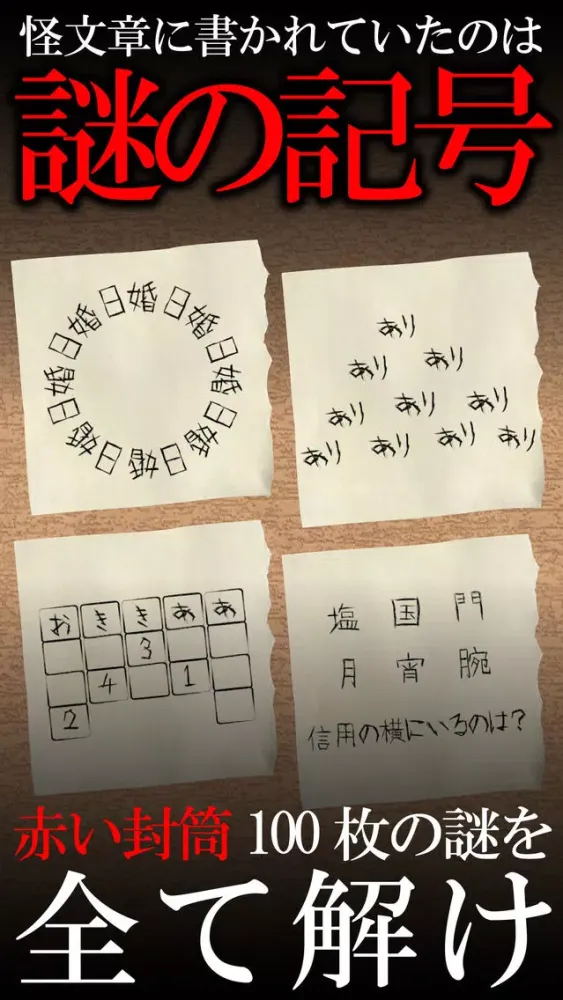 怪文章に書かれていたのは
謎の記号
日婚日婚日婚日婚日婚日婚日婚日婚
あり
あり あり
あり あり あり
あり あり あり あり
お き き あ あ
3
4 1
2
塩 国 門
月 宵 腕
信用の横にいるのは？
赤い封筒 100 枚の謎を
全て解け